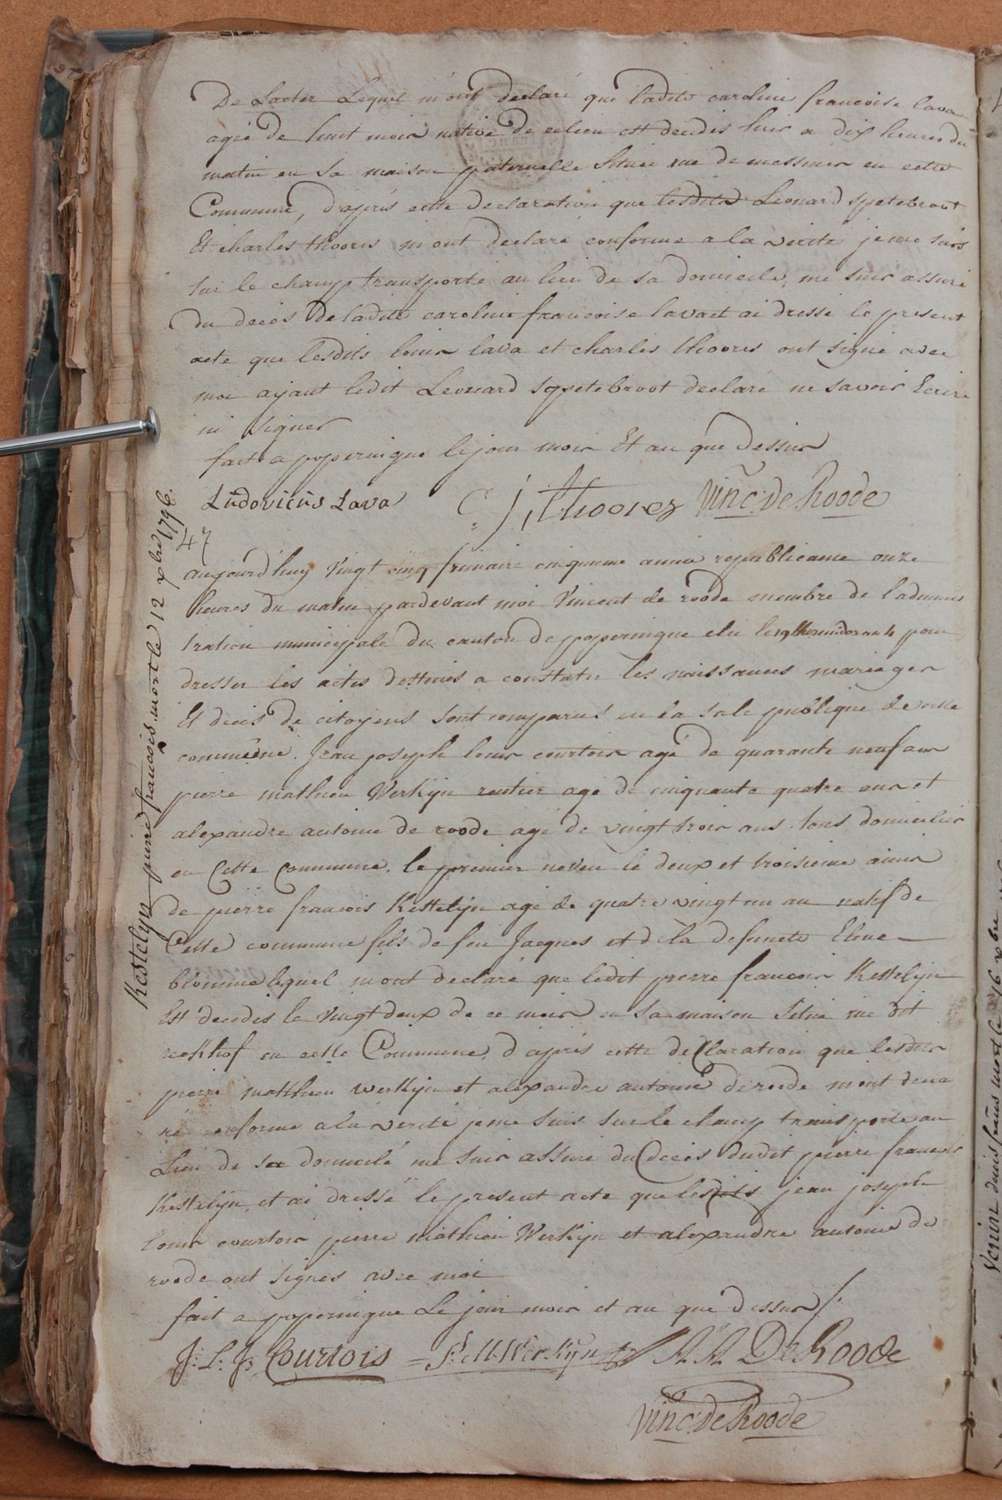 De Lacter Lequel m'ont declaré que ladite caroline francoise lava
agée de huit mois native de ce lieu est decedis hier a dix heures du
matin en sa maison paternelle située rue de messines en cette
Commune, d'après cette declaration que lesdits Leonard spetebroot
Et charles thooris m'ont declaré conforme a la verité je me suis
sur le champ transporté au lieu de sa domicile, me suis assuré
du deces de ladite caroline francoise lava et ai dressé le present
acte que lesdits louis lava et charles thooris ont signé avec
moi ayant ledit Leonard spetebroot declaré ne savoir Ecrire
ni signer
fait a poperingue le jour mois Et an que dessus
Ludovicus Lava C: j: thoores Vinc. de Roode
47
aujourd'huy vingt cinq frimaire cinquieme année republicaine onze
heures du matin pardevant moi Vincent de roode membre de l'adminis
tration municipale du canton de poperingue elu le 19 thermidor an 4 pour
dresser les actes destinés a constater les naissances mariages
Et deces de citoyens sont comparus en la sale publique de cette
commune. Jean joseph louis courtois agé de quarante neuf ans
pierre mathieu Werkyn rentier agé de cinquante quatre ans et
alexandre antoine de roode agé de vingt trois ans tous domiciliés
en Cette Commune, le premier neveu le deux et troisieme amis
de pierre francois Kestelyn agé de quatre vingt un an natif de
Cette commune fils de feu Jacques et de la defuncte
blomme lequel m'ont declaré que ledit pierre francois Kestelyn
Est decedis le vingt deux de ce mois en sa maison située rue dit
in cette Commune, d'après cette declaration que lesdits
pierre matthieu werkyn et alexandre antoine de roode m'ont decla
ré conforme a la verité je me suis sur le champ transporté au
Lieu de sa domicile me suis assuré du Deces dudit pierre francois
Kestelyn, et ai dressé le present acte que lesdits jean joseph
louis courtois pierre mathieu Werkyn et alexandre antoine de
roode ont signes avec moi
fait a poperingue Le jour mois et an que dessus
J: L: J: Courtois = P: M Werkyn A. A. De Roode
Vinc. de Roode
Kestelyn pierre françois, mort le 12 xbre 1796.